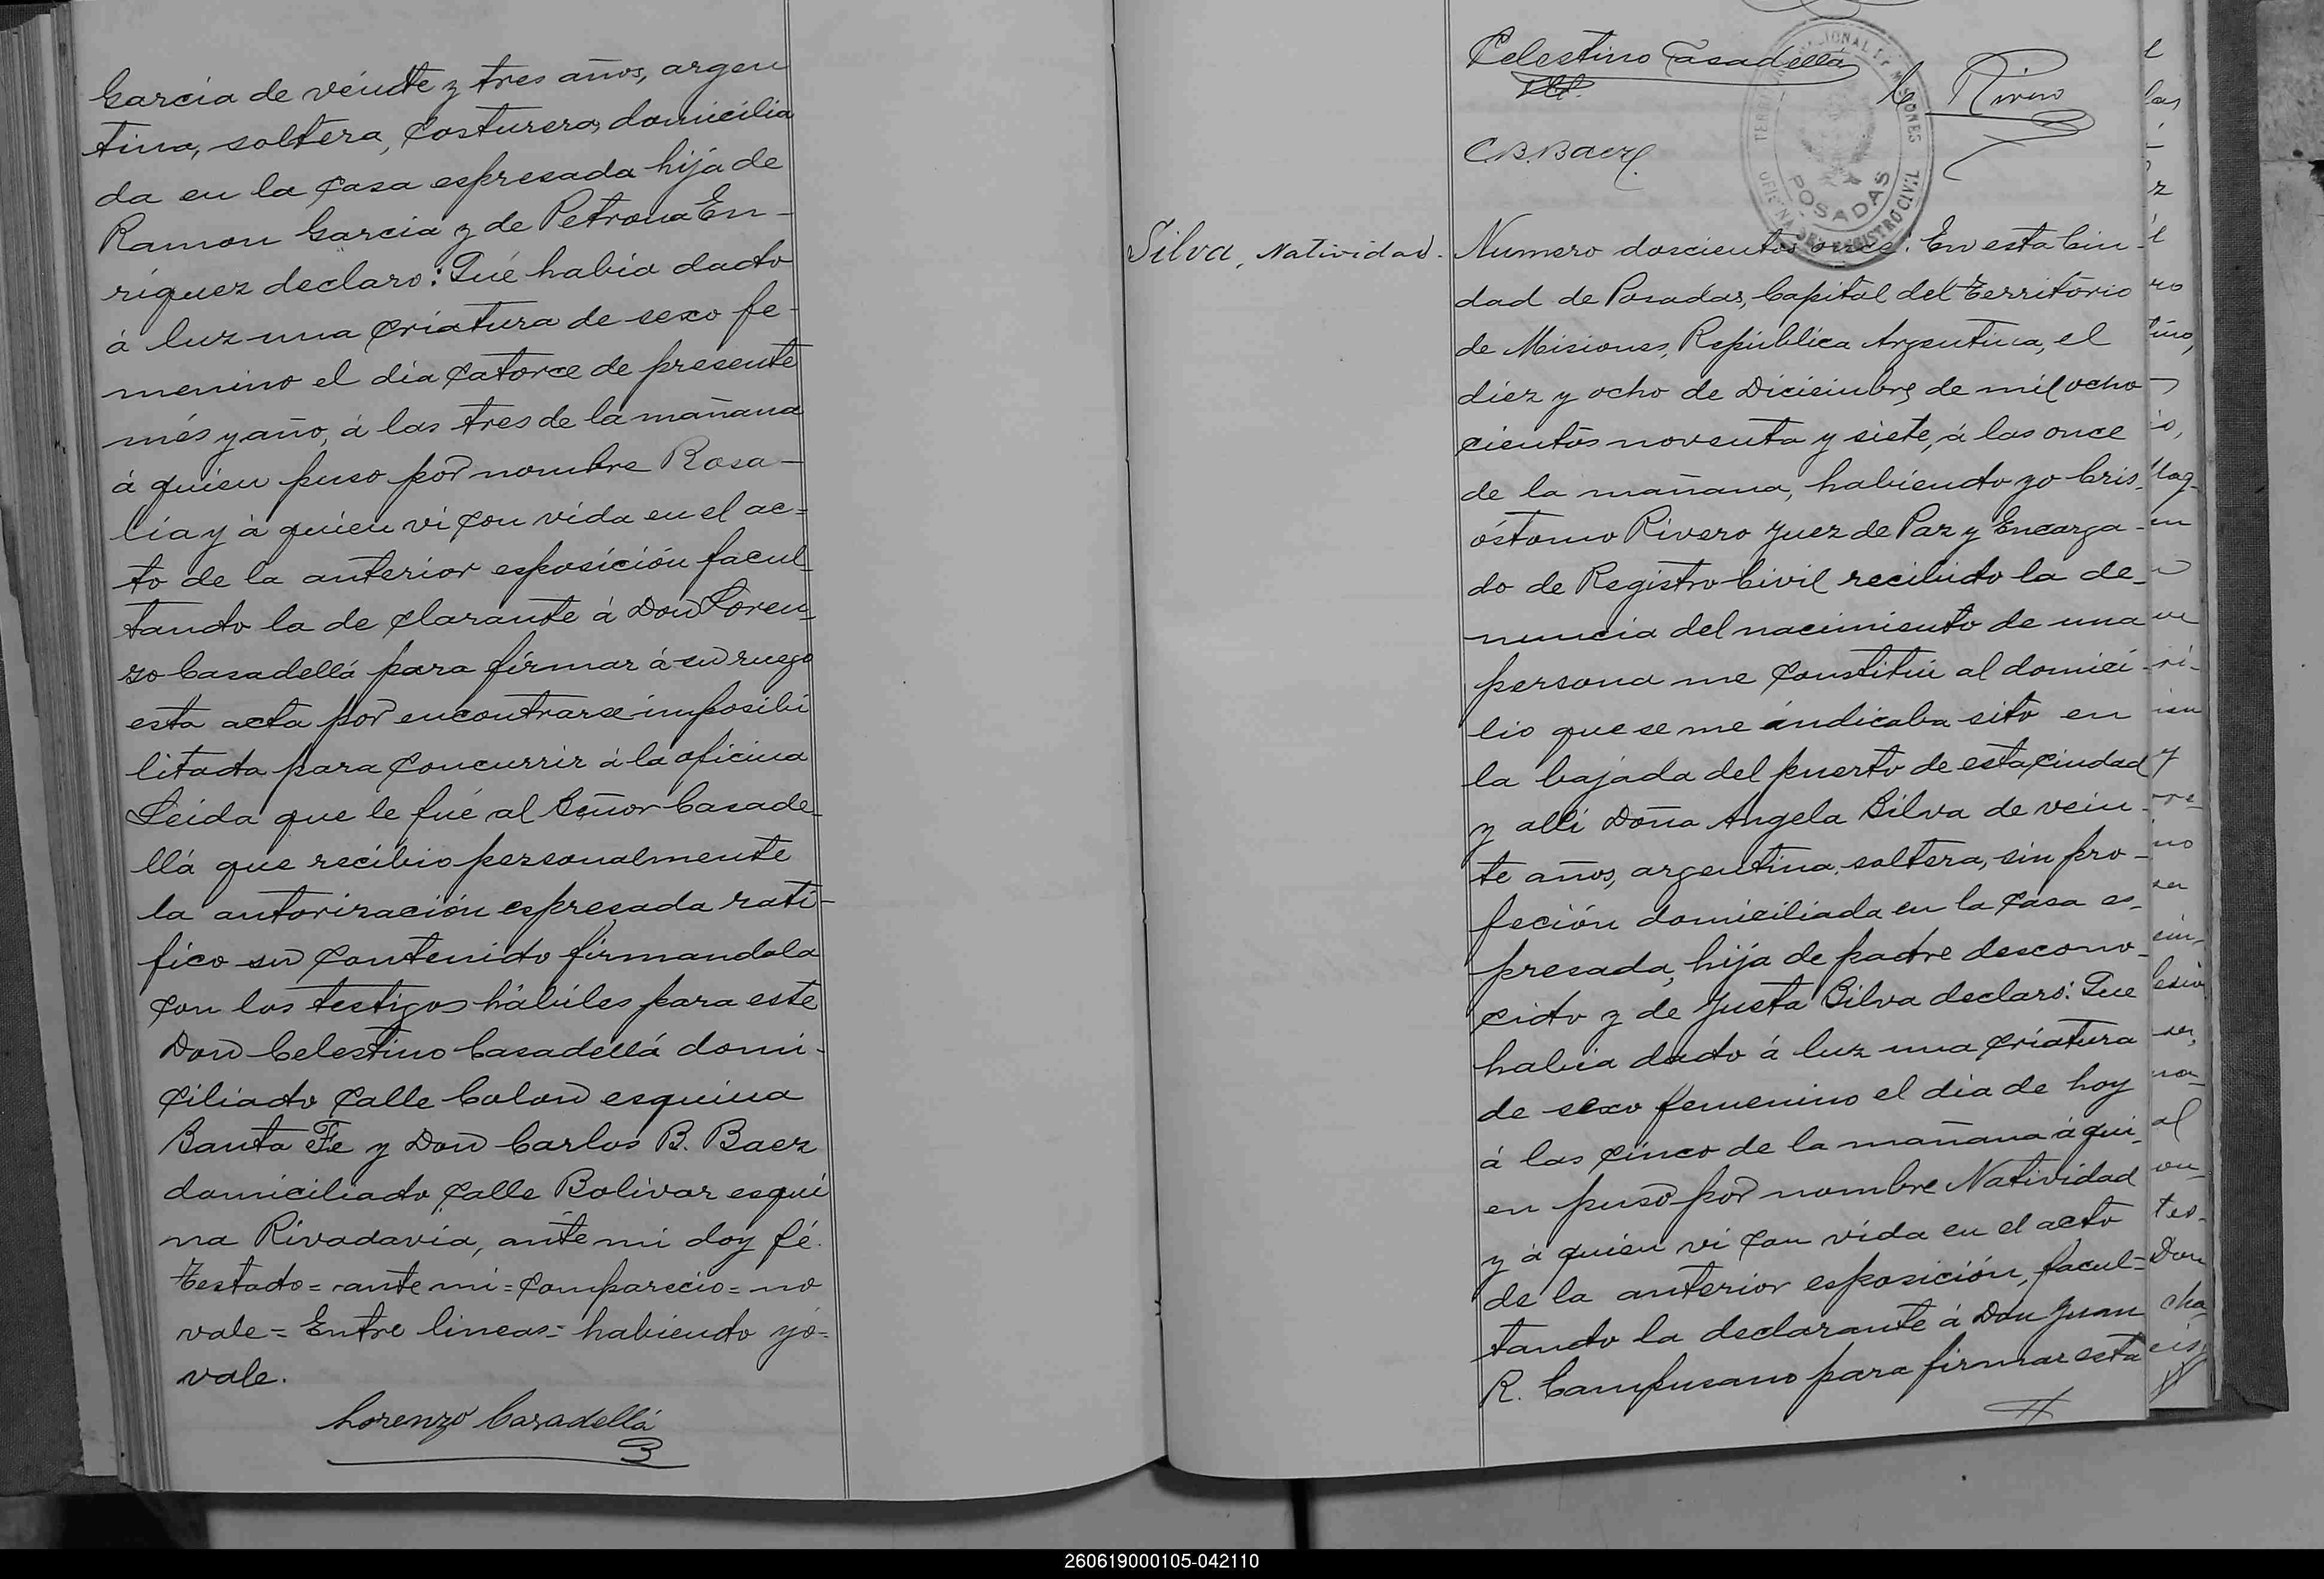 Garcia de veinte y tres años, argen
tina, soltera, costurera, domicilia
da en la casa espresada hija de
Ramon Garcia y de Petrona En-
riquez declaro: Qué habia dado
á luz una criatura de sexo fe-
menino el dia catorce de presente
més y año, á las tres de la mañana
á quien puso por nombre Rosa-
lia y á quien vi con vida en el ac=
to de la anterior esposición facul
tando la de clarante á Don Loren-
zo Casadellá para firmar á su ruego
esta acta por encontrarse imposibi
litada para concurrir á la oficina
Leida que le fué al Señor Casade-
llá que recibio personalmente
la autorización espresada rati-
fico su contenido firmandola
con los testigos hábiles para este
Don Celestino Casadellá domi-
ciliado calle Colon esquina
Santa Fe y Don Carlos B. Baez
domiciliado calle Bolivar esqui
na Rivadavia, ante mi doy fé.
Testado = ante mi = comparecio = no
vale = Entre lineas = habiendo yo =
vale.
Lorenzo Casadellá
Celestino Casadellá
C Rivero
C.B. Baez
POSADAS
OFICINA DEL REGISTRO CIVIL
Silva, Natividad.
Numero doscientos once: En esta Ciu-
dad de Posadas, Capital del Territorio
de Misiones, República Argentina, el
diez y ocho de Diciembre de mil ocho
cientos noventa y siete, á las once
de la mañana, habiendo yo Cris-
óstomo Rivero Juez de Paz y Encarga-
do de Registro Civil recibido la de-
nuncia del nacimiento de una
persona me constitui al domici-
lio que se me indicaba sito en
la bajada del puerto de esta ciudad
y alli Doña Angela Silva de vein-
te años, argentina, soltera, sin pro-
feción domiciliada en la casa es-
presada, hija de padre descono-
cido y de Justa Silva declaró: Que
habia dado á luz una criatura
de sexo femenino el dia de hoy
á las cinco de la mañana á qui-
en puso por nombre Natividad
y á quien vi con vida en el acto
de la anterior esposición, facul=
tando la declarante á Don Juan
R. Campusano para firmar esta
260619000105-042110